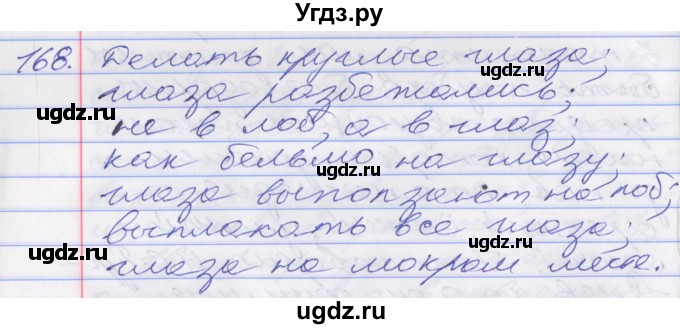 Угдз.ру
168. Делать круглые глаза;
глаза разбежались;
не в лоб, а в глаз;
как бельмо на глазу;
глаза выползают на лоб;
выплакать все глаза;
глаза на мокром месте.
ugdz.ru
ugdz.ru
ugdz.ru
ugdz.ru
ugdz.ru
ugdz.ru
ugdz.ru
ugdz.ru
Угдз.ру